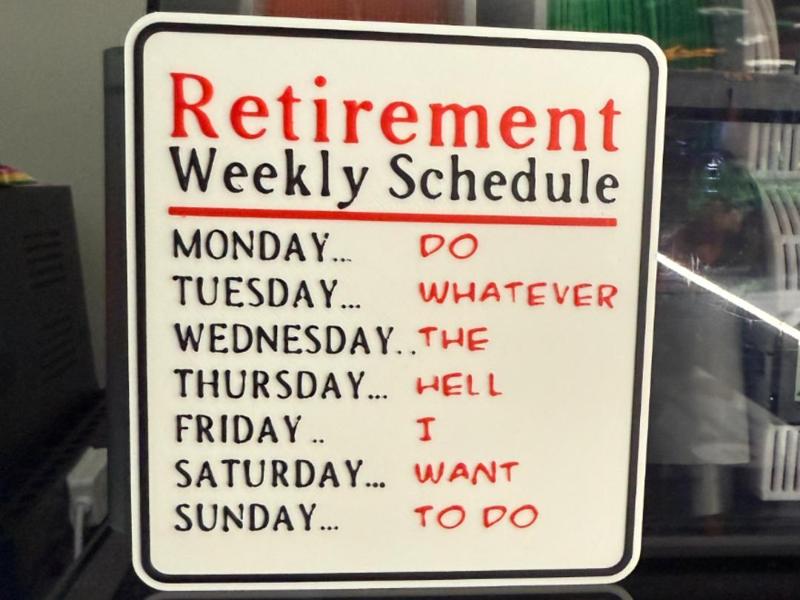 Retirement
Weekly Schedule
MONDAY... DO
TUESDAY... WHATEVER
WEDNESDAY.. THE
THURSDAY... HELL
FRIDAY.. I
SATURDAY... WANT
SUNDAY... TO DO